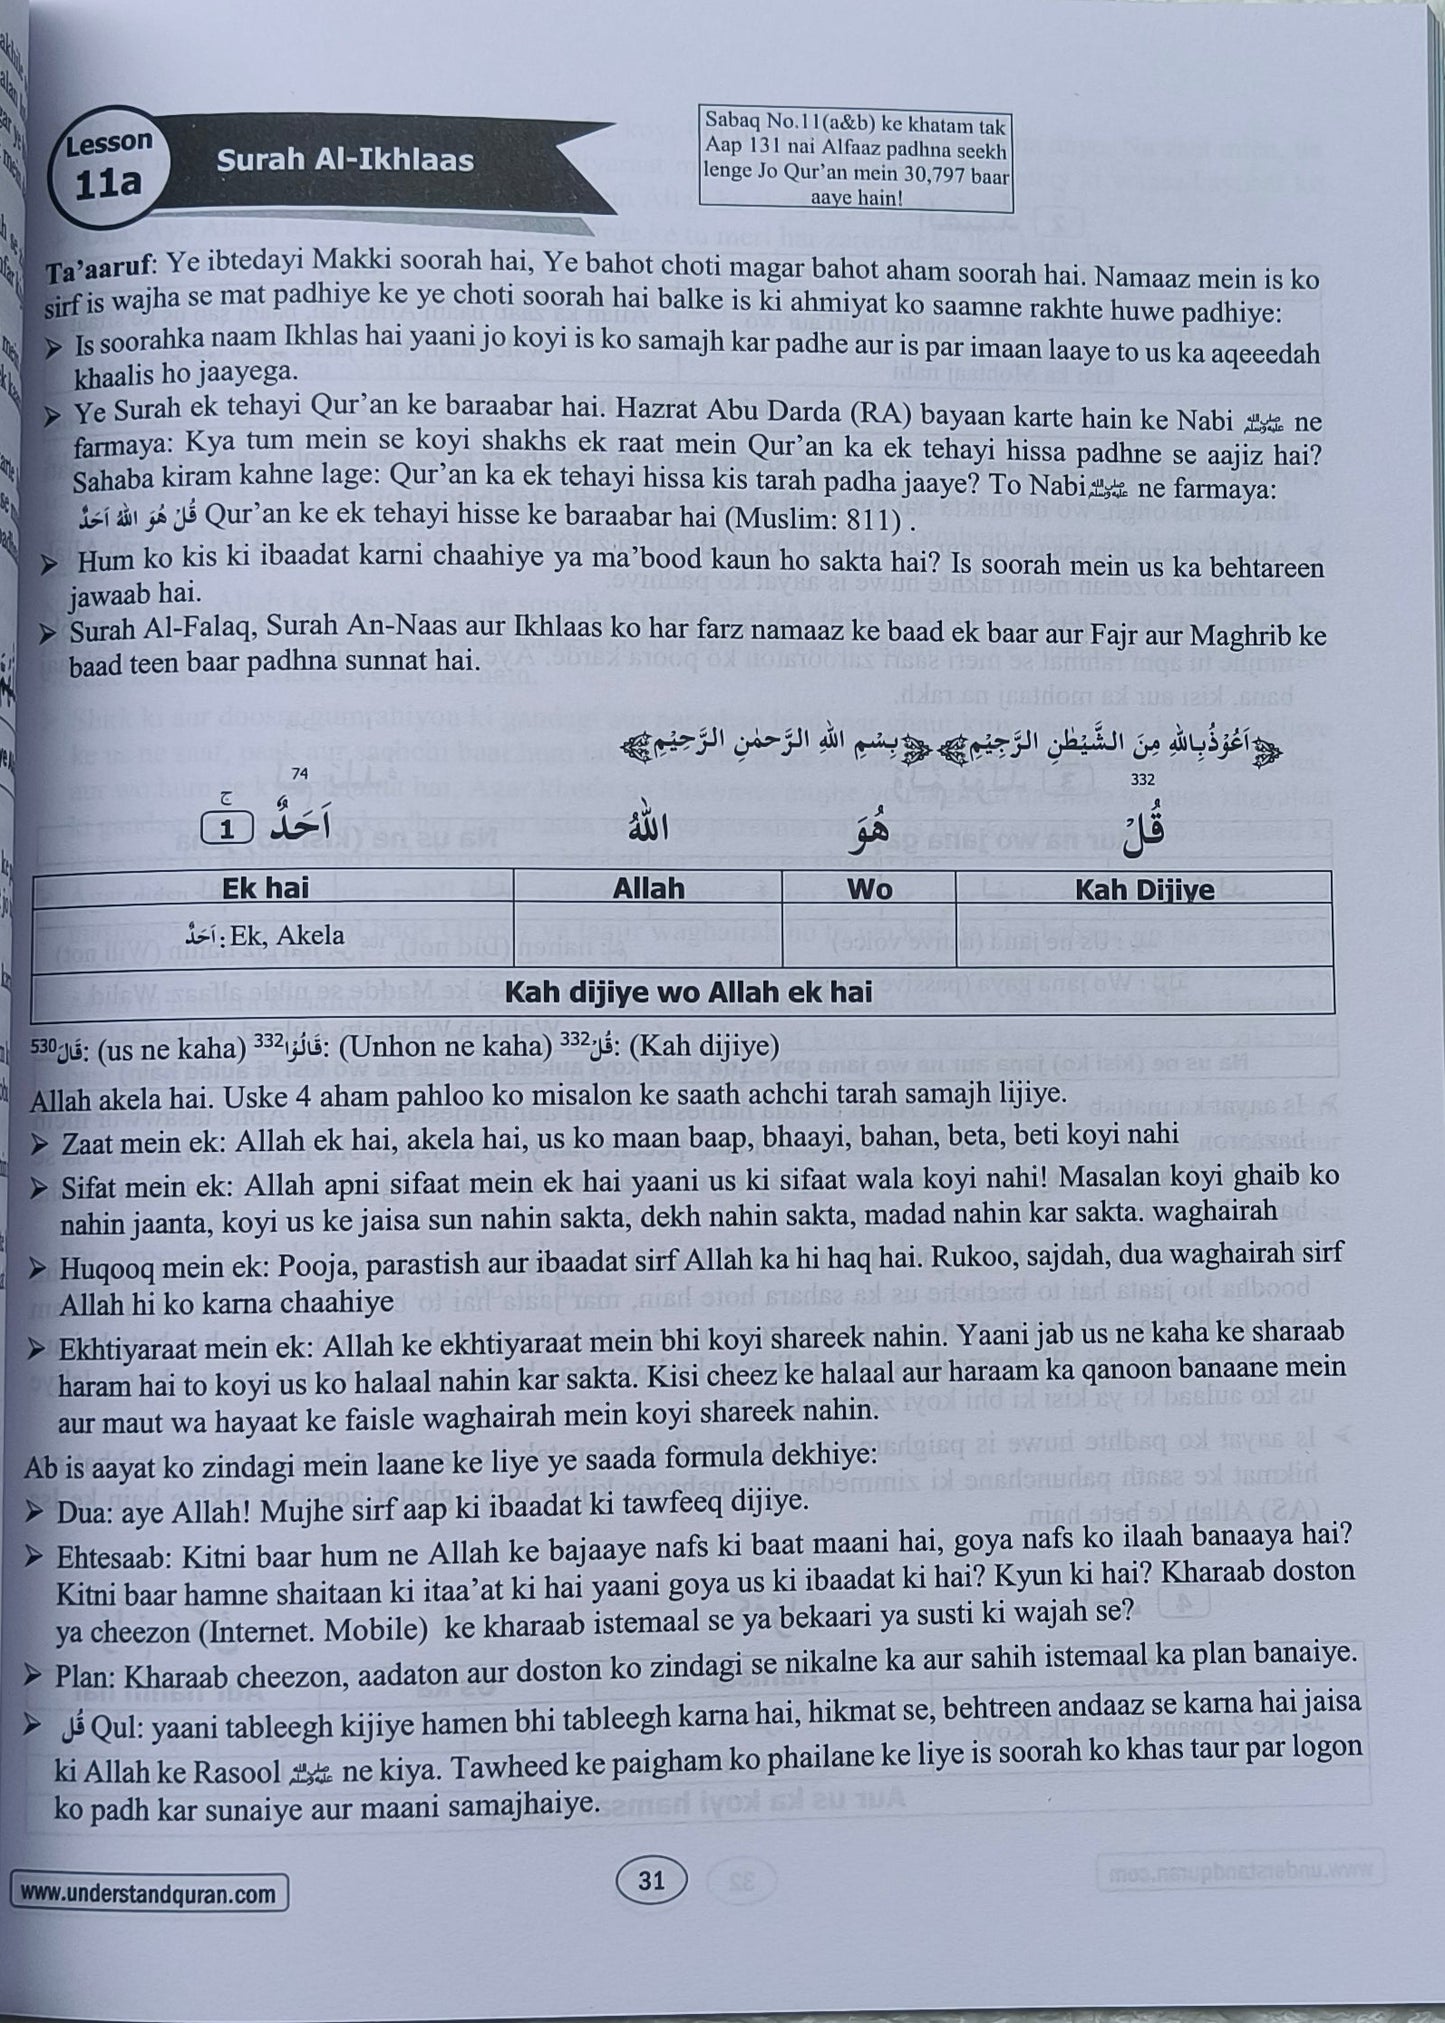 Lesson
11a
Surah Al-Ikhlaas
Sabaq No.11(a&b) ke khatam tak
Aap 131 nai Alfaaz padhna seekh
lenge Jo Qur'an mein 30,797 baar
aaye hain!
Ta'aaruf: Ye ibtedayi Makki soorah hai, Ye bahot choti magar bahot aham soorah hai. Namaaz mein is ko
sirf is wajha se mat padhiye ke ye choti soorah hai balke is ki ahmiyat ko saamne rakhte huwe padhiye:
➢ Is soorahka naam Ikhlas hai yaani jo koyi is ko samajh kar padhe aur is par imaan laaye to us ka aqeeedah
khaalis ho jaayega.
➢ Ye Surah ek tehayi Qur'an ke baraabar hai. Hazrat Abu Darda (RA) bayaan karte hain ke Nabi ﷺ ne
farmaya: Kya tum mein se koyi shakhs ek raat mein Qur'an ka ek tehayi hissa padhne se aajiz hai?
Sahaba kiram kahne lage: Qur'an ka ek tehayi hissa kis tarah padha jaaye? To Nabi ﷺ ne farmaya:
قُلْ هُوَ اللهُ اَحَدٌ Qur'an ke ek tehayi hisse ke baraabar hai (Muslim: 811) .
➢ Hum ko kis ki ibaadat karni chaahiye ya ma'bood kaun ho sakta hai? Is soorah mein us ka behtareen
jawaab hai.
➢ Surah Al-Falaq, Surah An-Naas aur Ikhlaas ko har farz namaaz ke baad ek baar aur Fajr aur Maghrib ke
baad teen baar padhna sunnat hai.
﴿اَعُوْذُ بِاللهِ مِنَ الشَّيْطٰنِ الرَّجِيْمِ﴾ ﴿بِسْمِ اللهِ الرَّحمٰنِ الرَّحِيْمِ﴾
332 74
قُلْ هُوَ اللهُ اَحَدٌ ج 1
Ek hai Allah Wo Kah Dijiye
اَحَدٌ: Ek, Akela
Kah dijiye wo Allah ek hai
530قَالَ: (us ne kaha) 332قَالُوْا: (Unhon ne kaha) 332قُلْ: (Kah dijiye)
Allah akela hai. Uske 4 aham pahloo ko misalon ke saath achchi tarah samajh lijiye.
➢ Zaat mein ek: Allah ek hai, akela hai, us ko maan baap, bhaayi, bahan, beta, beti koyi nahi
➢ Sifat mein ek: Allah apni sifaat mein ek hai yaani us ki sifaat wala koyi nahi! Masalan koyi ghaib ko
nahin jaanta, koyi us ke jaisa sun nahin sakta, dekh nahin sakta, madad nahin kar sakta. waghairah
➢ Huqooq mein ek: Pooja, parastish aur ibaadat sirf Allah ka hi haq hai. Rukoo, sajdah, dua waghairah sirf
Allah hi ko karna chaahiye
➢ Ekhtiyaraat mein ek: Allah ke ekhtiyaraat mein bhi koyi shareek nahin. Yaani jab us ne kaha ke sharaab
haram hai to koyi us ko halaal nahin kar sakta. Kisi cheez ke halaal aur haraam ka qanoon banaane mein
aur maut wa hayaat ke faisle waghairah mein koyi shareek nahin.
Ab is aayat ko zindagi mein laane ke liye ye saada formula dekhiye:
➢ Dua: aye Allah! Mujhe sirf aap ki ibaadat ki tawfeeq dijiye.
➢ Ehtesaab: Kitni baar hum ne Allah ke bajaaye nafs ki baat maani hai, goya nafs ko ilaah banaaya hai?
Kitni baar hamne shaitaan ki itaa'at ki hai yaani goya us ki ibaadat ki hai? Kyun ki hai? Kharaab doston
ya cheezon (Internet. Mobile) ke kharaab istemaal se ya bekaari ya susti ki wajah se?
➢ Plan: Kharaab cheezon, aadaton aur doston ko zindagi se nikalne ka aur sahih istemaal ka plan banaiye.
➢ قُل Qul: yaani tableegh kijiye hamen bhi tableegh karna hai, hikmat se, behtreen andaaz se karna hai jaisa
ki Allah ke Rasool ﷺ ne kiya. Tawheed ke paigham ko phailane ke liye is soorah ko khas taur par logon
ko padh kar sunaiye aur maani samajhaiye.
www.understandquran.com
31